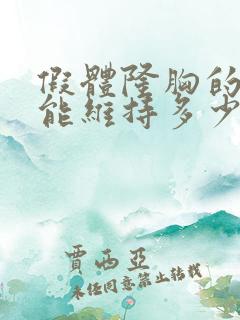 假體隆胸的
能維持多少
賈西亞
未经同意禁止转载